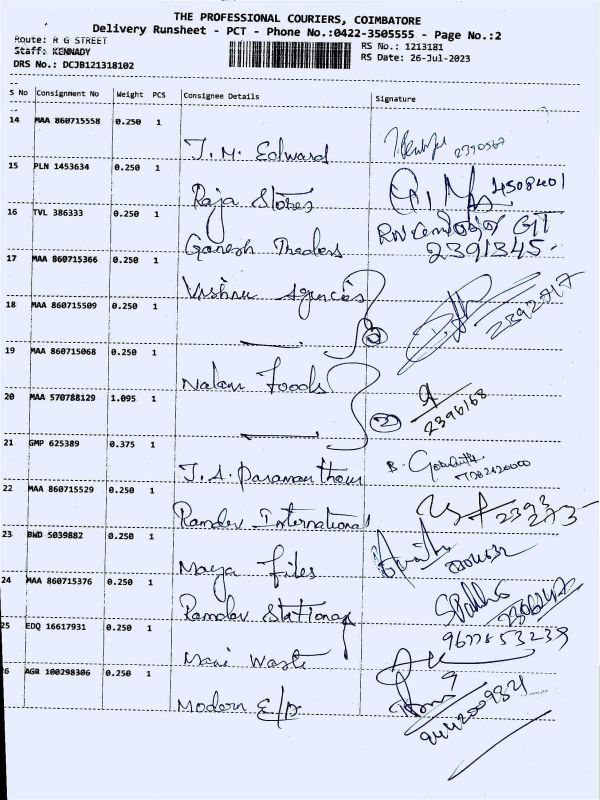 THE PROFESSIONAL COURIERS, COIMBATORE
Delivery Runsheet - PCT - Phone No.:0422-3505555 - Page No.:2
Route: R G STREET
RS No.: 1213181
Staff: KENNADY
RS Date: 26-Jul-2023
DRS No.: DCJB121318102
S No Consignment No Weight PCS Consignee Details Signature
14 MAA 860715558 0.250 1
J. M. Edward 2390567
15 PLN 1453634 0.250 1
Raja Stores 4508401
16 TVL 386333 0.250 1
Ganesh Traders 2391345
17 MAA 860715366 0.250 1
Vishnu Agencies
18 MAA 860715509 0.250 1
2 2392717
19 MAA 860715068 0.250 1
Nalam Foods
20 MAA 570788129 1.095 1
2 2396168
21 GMP 625389 0.375 1
22 MAA 860715529 0.250 1
Ramdev International 2393273
23 BWD 5039882 0.250 1
Maya Files
24 MAA 860715376 0.250 1
Ramdev Stationary
25 EDQ 16617931 0.250 1
Mani Waste 9677853239
26 AGR 100298306 0.250 1
Modern E/p